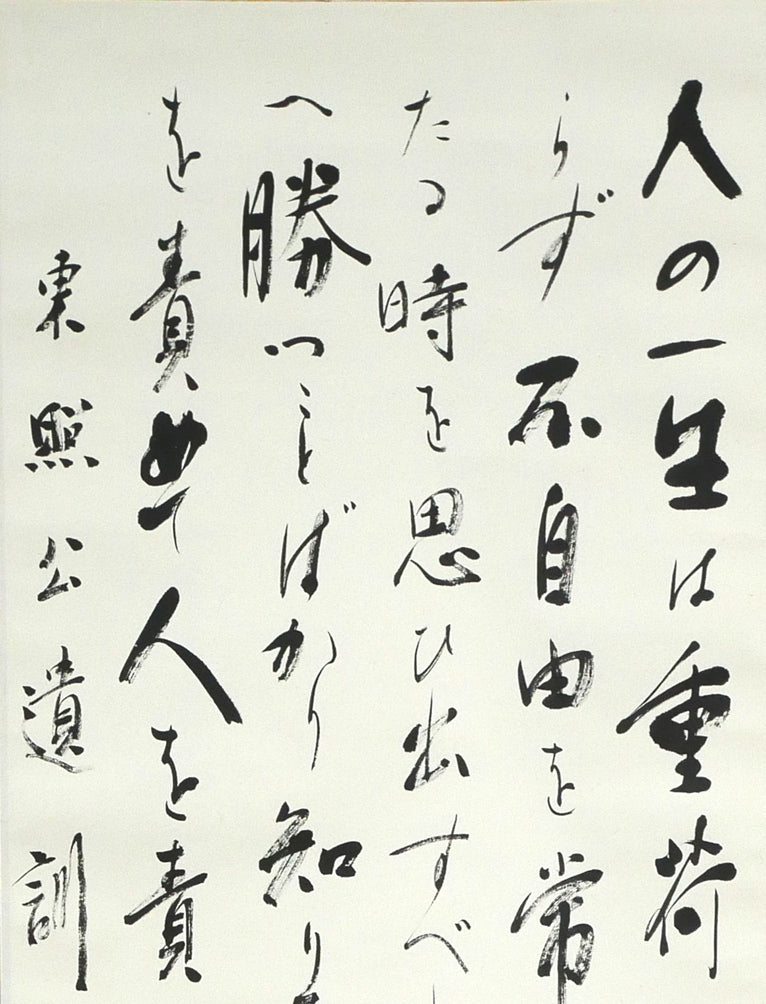 人の一生は重荷
らず不自由を常
たる時を思ひ出すべし
へ勝つことばかり知り
を責めて人を責
東照公遺訓